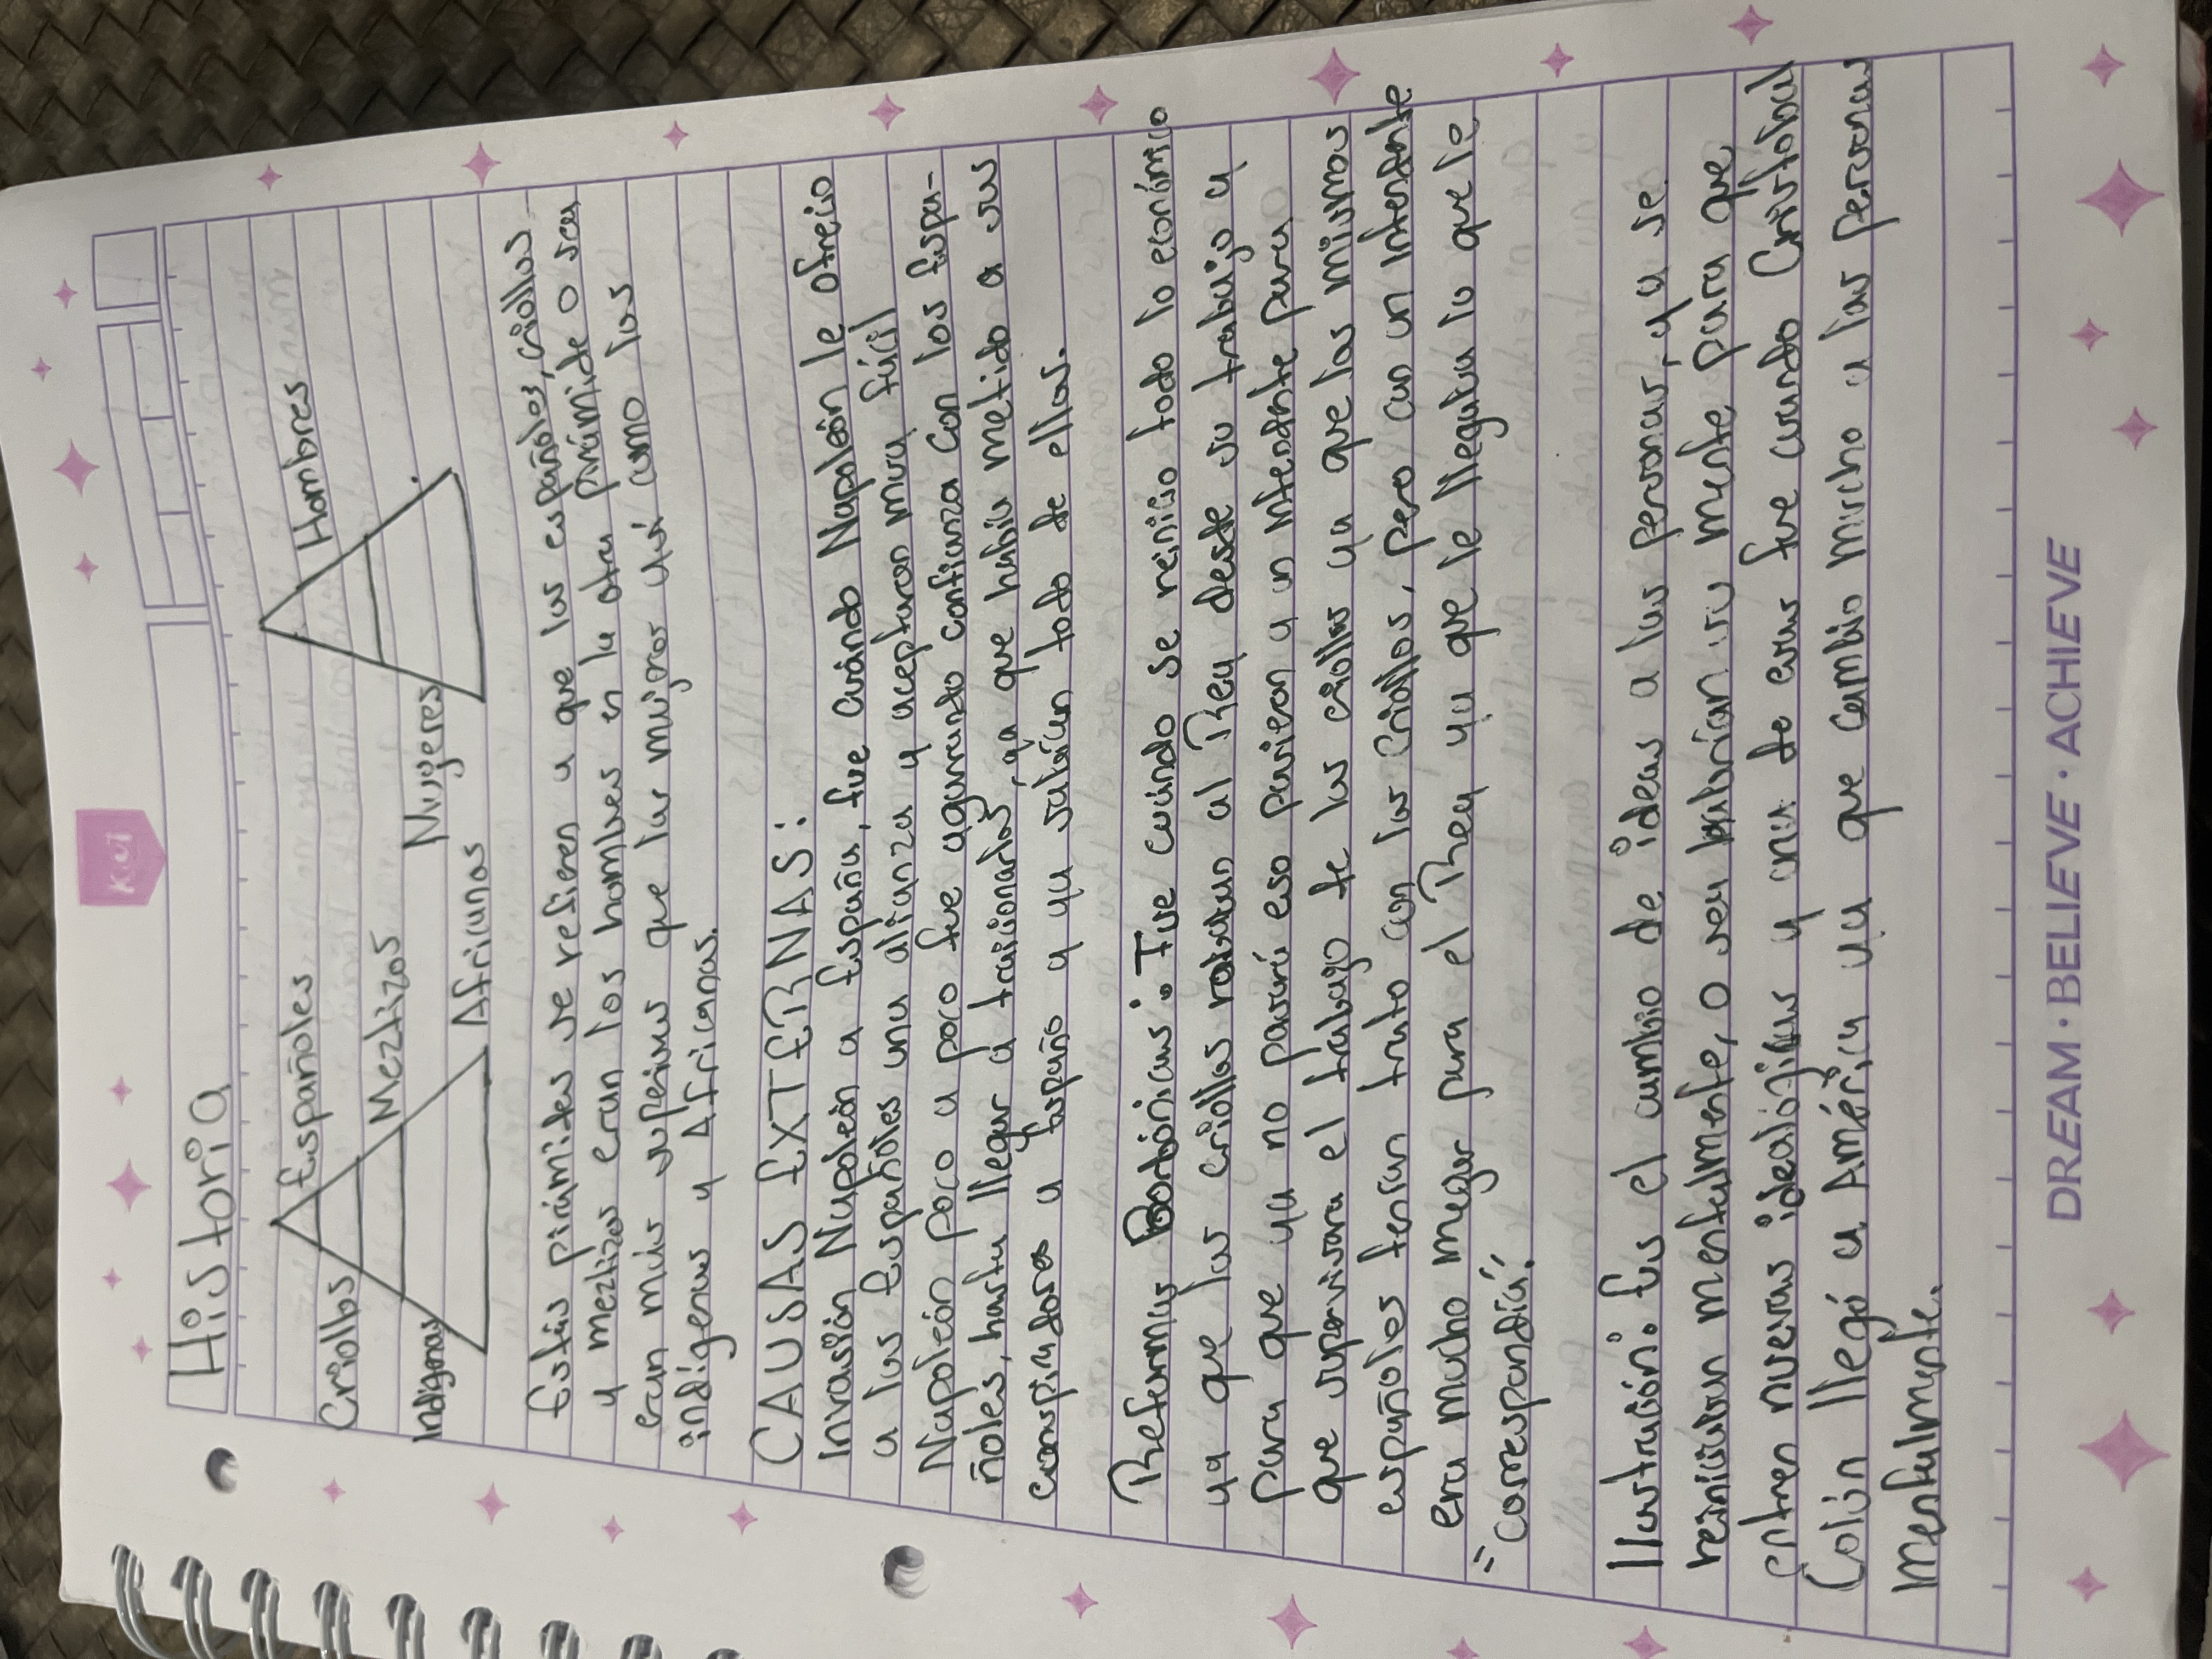 Kut
Historia
Españoles
Hombres
Criollos
Meztizos
Mugeres
Indigenas
Africanos
Estás pirámides se refieren a que los españoles, criollos
y meztizos eran los hombres en la otra pirámide o sea
eran más supeiores que las mujeres así como los
indígenas y Africanos.
CAUSAS EXTERNAS:
Invasión Napoleón a España, fue cuándo Napoleón le ofrecio
a los Españoles una alianza y aceptaron muy fácil
Napoleón poco a poco fue agarrando confianza con los Espa-
ñoles, hasta llegar a traicionarlos, ya que había metido a sus
conspiradores a España y ya sabían todo de ellos.
Reformas Borbónicas: Fue cuándo se reinicio todo lo económico
ya que los criollos robaban al Rey desde su trabajo y
para que ya no pasará eso pusieron a un intendente para
que supervisara el trabajo de los criollos ya que los mismos
españoles tenían trato con los criollos, pero con un intendente
era mucho megor para el Rey ya que le llegaba lo que le
"correspondía".
Ilustración: Es el cambio de ideas a las personas, y se
reiniciaban mentalmente, o sea habrían su mente para que
entren nuevas ideologías y una de esas fue cuando Cristobal
Colón llegó a América ya que cambio mucho a las personas
mentalmente.
DREAM · BELIEVE · ACHIEVE